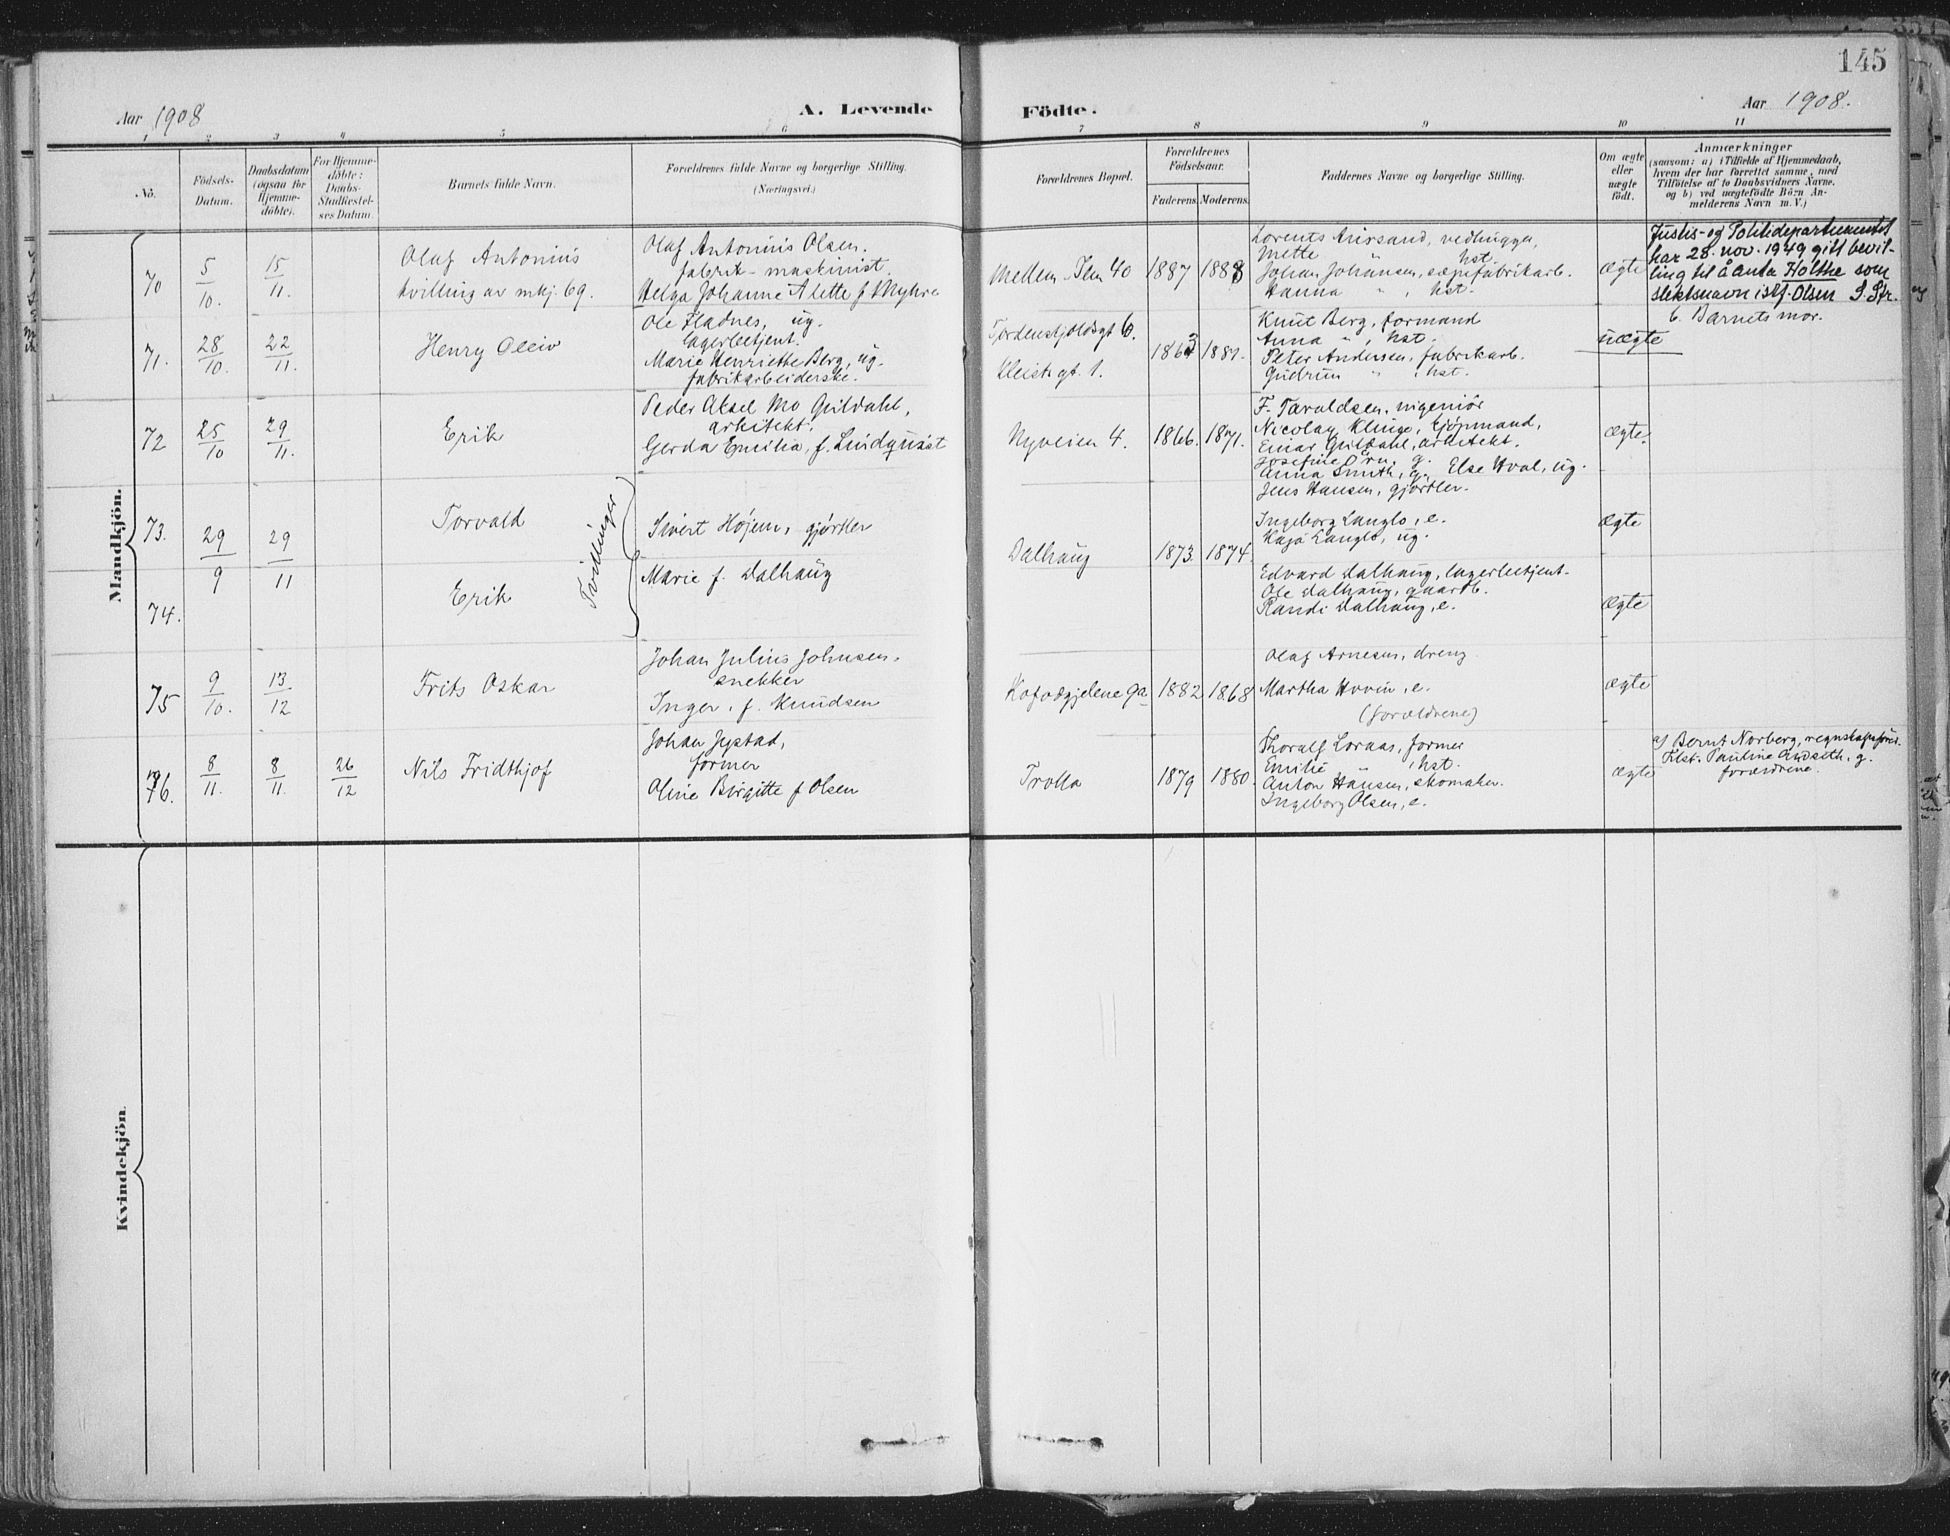 145
Aar 1908
A. Levende
Födte.
Aar 1908.
1 2 3 4 5 6 7 8 9 10 11
No.
Födsels-
Datum.
Daabsdatum
(ogsaa for
Hjemme-
döbte).
For Hjemme-
döbte:
Daabs-
Stadfæstel-
ses Datum.
Barnets fulde Navn.
Forældrenes fulde Navne og borgerlige Stilling.
(Næringsvei.)
Forældrenes Bopæl.
Forældrenes
Födselsaar.
Faderens. Moderens.
Faddernes Navne og borgerlige Stilling.
Om ægte
eller
uægte
födt.
Anmærkninger
(saasom: a) i Tilfælde af Hjemmedaab,
hvem der har forrettet samme, med
Tilföielse af to Daabsvidners Navne,
og b) ved uægtefödte Börn An-
melderens Navn m. V.)
Mandkjön.
70
5/10.
15/11.
Olaf Antonius
tvilling av mkj. 69.
Olaf Antonius Olsen.
fabrik-maskinist.
Helga Johanne Alette f Myhre
Mellem Ilen 40
1887 1888
Lorents Aursand, vedhugger,
Mette " hst.
Johan Johansen, sæpefabrikarb.
Hanna " , hst.
ægte
Justis- og Politidepartementet
har 28. nov. 1949 gitt bevil-
ling til å anta Holthe som
slektsnavn istf. Olsen S. Str.
71.
28/10.
22/11.
Henry Oleiv
Ole Fladnes, ug.
lagerbetjent.
Marie Henriette Berg, ug.
fabrikarbeiderske.
Tordenskjoldsgt 6.
Kleists gt. 1.
1863 1881.
Knut Berg, formand
Anna " , hst.
Peter Andersen, fabrikarb.
Gudrun " , hst.
uægte
b. Barnets mor.
72
25/10
29/11.
Erik
Peder Aksel Mo Guldahl,
arkitekt.
Gerda Emilia, f. Lindqvist
Nyveien 4.
1866. 1871.
F. Taraldsen, ingeniör
Nicolay Klinge, kjöpmand,
Einar Guldahl, arkitekt.
Josefine Örn, g.
Anna Smith, g. Else Hval, ug.
Jens Hansen, gjörtler.
ægte.
73.
29/9
29/11
Torvald
Tvillinger
Sivert Højem, gjørtler
Marie f. Dalhaug
Dalhaug
1873 1874.
Ingeborg Langlo, e.
Kaja Langlo, ug.
ægte
74.
Erik
Edvard Dalhaug, lagerbetjent.
Ole Dalhaug, gaardb.
Randi Dalhaug, e.
ægte
75
9/10.
13/12
Frits Oskar
Johan Julius Johnsen.
snekker
Inger, f. Knudsen
9a
1882 1868
Olaf Arnesen, dreng
Martha Hovin, e.
(forældrene)
ægte
76.
8/11.
8/11.
26/12
Nils Fridthjof
Johan Jystad,
former
Oline Birgitte f Olsen
Trolla
1879 1880.
Thoralf Loraas, former
Emilie " , hst.
Anton Hansen, skomaker.
Ingeborg Olsen, e.
ægte
a) Bernt Norberg,
Tilst. Pauline g.
forældrene.
Kvindekjön.